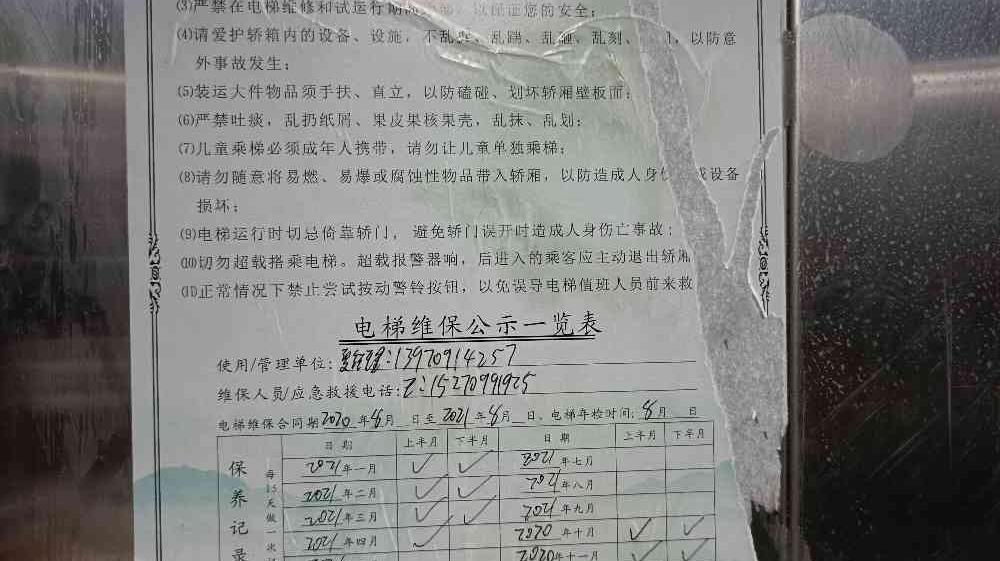 (3)严禁在电梯维修和试运行期间 以保证您的安全;
(4)请爱护轿箱内的设备、设施,不乱 乱踢、乱 、乱刻、 ,以防意
外事故发生;
(5)装运大件物品须手扶、直立,以防磕碰、划坏轿厢壁板面;
(6)严禁吐痰,乱扔纸屑、果皮果核果壳,乱抹、乱划;
(7)儿童乘梯必须成年人携带,请勿让儿童单独乘梯;
(8)请勿随意将易燃、易爆或腐蚀性物品带入轿厢,以防造成人身 或设备
损坏;
(9)电梯运行时切忌倚靠轿门,避免轿门误开时造成人身伤亡事故;
(10)切勿超载搭乘电梯。超载报警器响,后进入的乘客应主动退出轿厢
(11)正常情况下禁止尝试按动警铃按钮,以免误导电梯值班人员前来救
电梯维保公示一览表
使用/管理单位: :13970914257
维保人员/应急救援电话: :15270991925
电梯维保合同期2020年8月 日至2021年8月 日、电梯年检时间:8月 日
日期 上半月 下半月 日期 上半月 下半月
保养记录
每15天做一次
2021年一月 ✓ ✓ 2021年七月
2021年二月 ✓ ✓ 2021年八月
2021年三月 ✓ ✓ 2021年九月
2021年四月 ✓ 2020年十月 ✓ ✓
2020年十一月 ✓ ✓